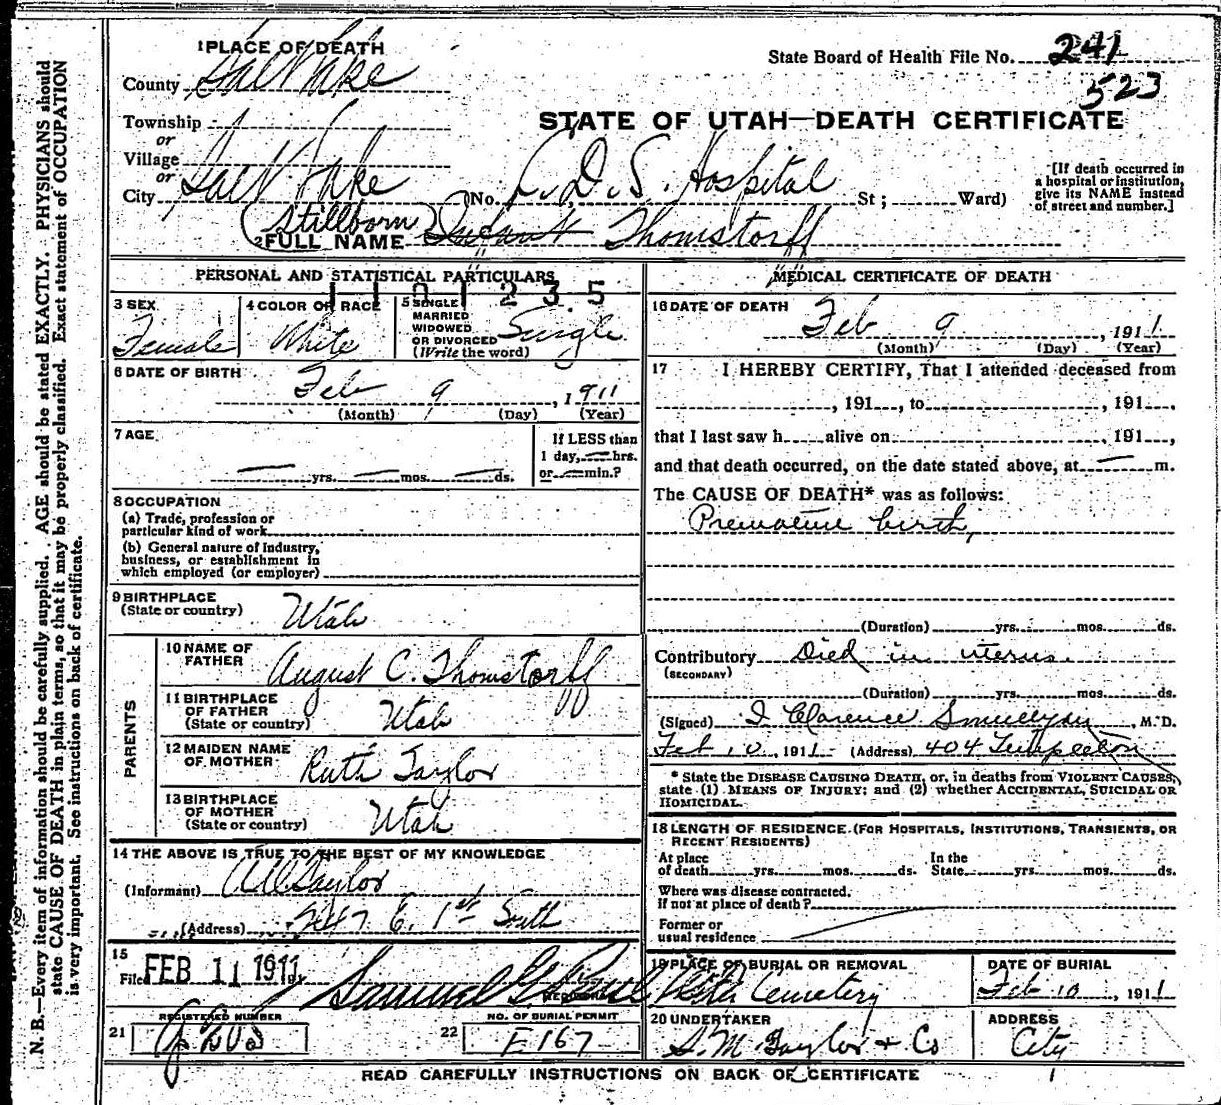 1 PLACE OF DEATH
State Board of Health File No. 241
523
County Salt Lake
STATE OF UTAH—DEATH CERTIFICATE
Township
or
Village
or
City Salt Lake (No. L. D. S. Hospital St; Ward)
[If death occurred in
a hospital or institution,
give its NAME instead
of street and number.]
(Stillborn)
2 FULL NAME Infant Thomstorff
PERSONAL AND STATISTICAL PARTICULARS
1101235
3 SEX
Female
4 COLOR OR RACE
White
5 SINGLE
MARRIED
WIDOWED
OR DIVORCED
(Write the word)
Single
6 DATE OF BIRTH
Feb 9, 1911
(Month) (Day) (Year)
7 AGE
yrs. mos. ds.
If LESS than
1 day, hrs.
or min.?
8 OCCUPATION
(a) Trade, profession or
particular kind of work
(b) General nature of industry,
business, or establishment in
which employed (or employer)
9 BIRTHPLACE
(State or country) Utah
PARENTS
10 NAME OF
FATHER August C. Thomstorff
11 BIRTHPLACE
OF FATHER
(State or country) Utah
12 MAIDEN NAME
OF MOTHER Ruth Taylor
13 BIRTHPLACE
OF MOTHER
(State or country) Utah
14 THE ABOVE IS TRUE TO THE BEST OF MY KNOWLEDGE
(Informant) Taylor
(Address) E. 1st South
15
Filed FEB 11 1911
Samuel G. Paul
REGISTRAR
REGISTERED NUMBER
21
NO. OF BURIAL PERMIT
22 E 167
MEDICAL CERTIFICATE OF DEATH
16 DATE OF DEATH
Feb 9, 1911
(Month) (Day) (Year)
17 I HEREBY CERTIFY, That I attended deceased from
, 191 , to , 191 ,
that I last saw h alive on , 191 ,
and that death occurred, on the date stated above, at m.
The CAUSE OF DEATH* was as follows:
Premature birth,
(Duration) yrs. mos. ds.
Contributory Died in uterus.
(SECONDARY)
(Duration) yrs. mos. ds.
(Signed) Clarence , M.D.
Feb 10, 1911 (Address) 404 Templeton
* State the DISEASE CAUSING DEATH, or, in deaths from VIOLENT CAUSES,
state (1) MEANS OF INJURY; and (2) whether ACCIDENTAL, SUICIDAL OR
HOMICIDAL.
18 LENGTH OF RESIDENCE (FOR HOSPITALS, INSTITUTIONS, TRANSIENTS, OR
RECENT RESIDENTS)
At place
of death yrs. mos. ds.
In the
State yrs. mos. ds.
Where was disease contracted.
If not at place of death?
Former or
usual residence
19 PLACE OF BURIAL OR REMOVAL
Cemetery
DATE OF BURIAL
Feb 10, 1911
20 UNDERTAKER
S. M. Taylor & Co
ADDRESS
City
READ CAREFULLY INSTRUCTIONS ON BACK OF CERTIFICATE
N. B.—Every item of information should be carefully supplied. AGE should be stated EXACTLY. PHYSICIANS should
state CAUSE OF DEATH in plain terms, so that it may be properly classified. Exact statement of OCCUPATION
is very important. See instructions on back of certificate.